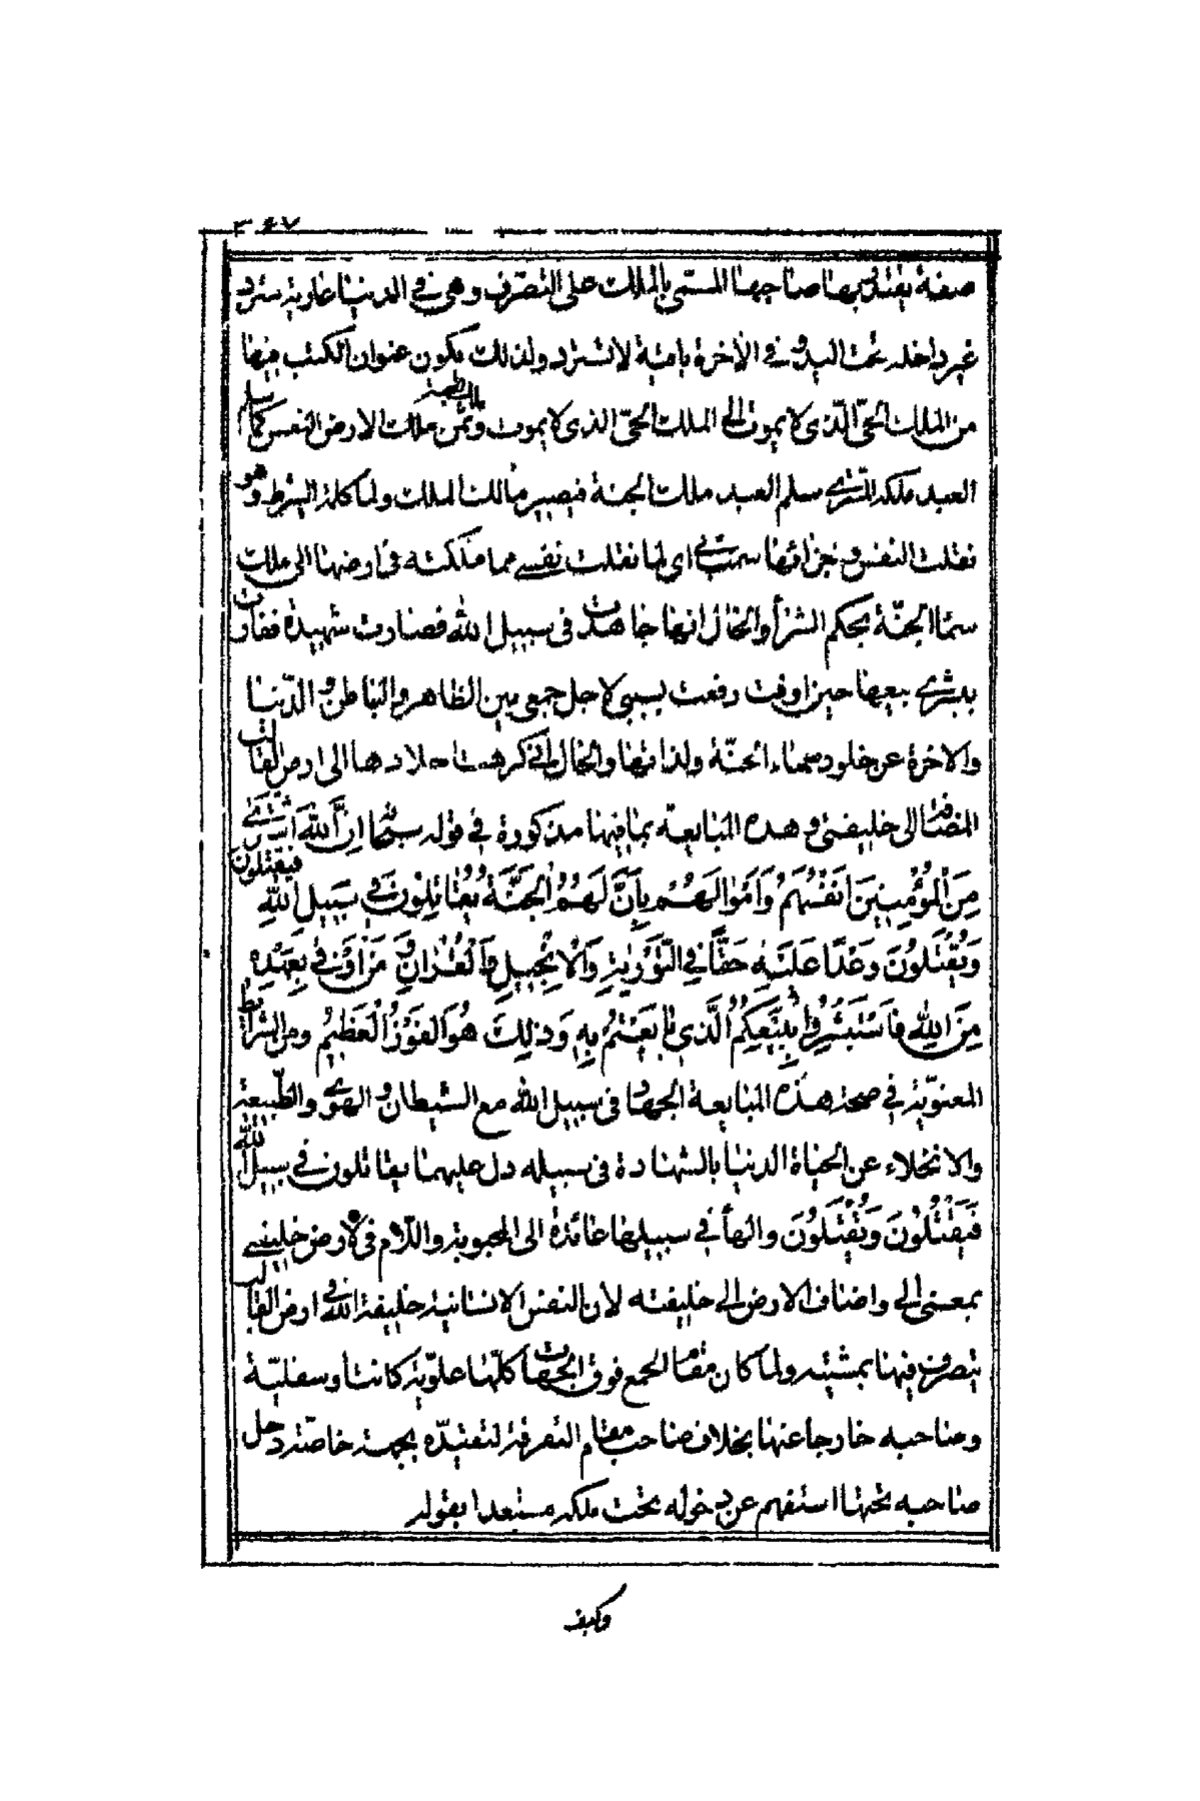 ٣٤٧
صفة يقتدر بها صاحبها المسمى بالملك على التصرف وهى فى الدنيا عارية تسترد
غير داخلة تحت اليد وفى الآخرة باقية لا تسترد ولذلك يكون عنوان الكتب فيها
من الملك الحىّ الّذى لا يموت الى الملك الحىّ الذى لا يموت وثمن ملك الارض النفس المطمئنة كما سلم
العبد ملكه للشرى سلم العبد ملك الجنة فيصير مالك الملك ولما كلمة الشرط وهو
نقلت النفس وجزاؤها سمت بى اى لما نقلت نفسى مما ملكته فى ارضها الى ملك
سما الجنّة بحكم الشرأ والحال انها جاهدت فى سبيل الله فصارت شهيدة ففازت
ببشرى بيعها حين اوفت رفعت بسببى لاجل جمعى بين الظاهر والباطن والدّنيا
والاخرة عن خلود سماء الجنّة ولذاتها والحال انى كرهت اخلادها الى ارض القالب
المضافة الى خليفتى وهذه المبايعة بما فيها مذكورة فى قوله سبحانه اِنَّ اللّٰهَ اشْتَرٰى
مِنَ الْمُؤْمِنِينَ اَنْفُسَهُمْ وَاَمْوَالَهُمْ بِاَنَّ لَهُمُ الْجَنَّةَ يُقَاتِلُونَ فِى سَبِيلِ اللّٰهِ فَيَقْتُلُونَ
وَيُقْتَلُونَ وَعْدًا عَلَيْهِ حَقًّا فِى التَّوْرٰيةِ وَالْاِنْجِيلِ وَالْقُرْاٰنِ وَمَنْ اَوْفٰى بِعَهْدِهِ
مِنَ اللّٰهِ فَاسْتَبْشِرُوا بِبَيْعِكُمُ الَّذِى بَايَعْتُمْ بِهِ وَذٰلِكَ هُوَ الْفَوْزُ الْعَظِيمُ ومن الشرائط
المعنويّة فى صحة هذه المبايعة الجهاد فى سبيل الله مع الشيطان والهوى والطّبيعة
والانخلاء عن الحياة الدنيا بالشهادة فى سبيله دل عليهما يقاتلون فى سبيل الله
فَيَقْتُلُوْنَ وَيُقْتَلُوْنَ والهأ فى سبيلها عائدة الى المحبوبة واللّام فى لارض خليفتى
بمعنى الى واضاف الارض الى خليفته لان النفس الانسانية خليفة الله فى ارض القالب
يتصرف فيها بمشيته ولما كان مقام الجمع فوق الجهات كلّها علويّة كانت أو سفليّة
وصاحبه خارجا عنها بخلاف صاحب مقام التفرقة لتقيّده بجهة خاصّة دخل
صاحبه تحتها استفهم عن دخوله تحت ملكه مستبعدا بقوله
وكيف